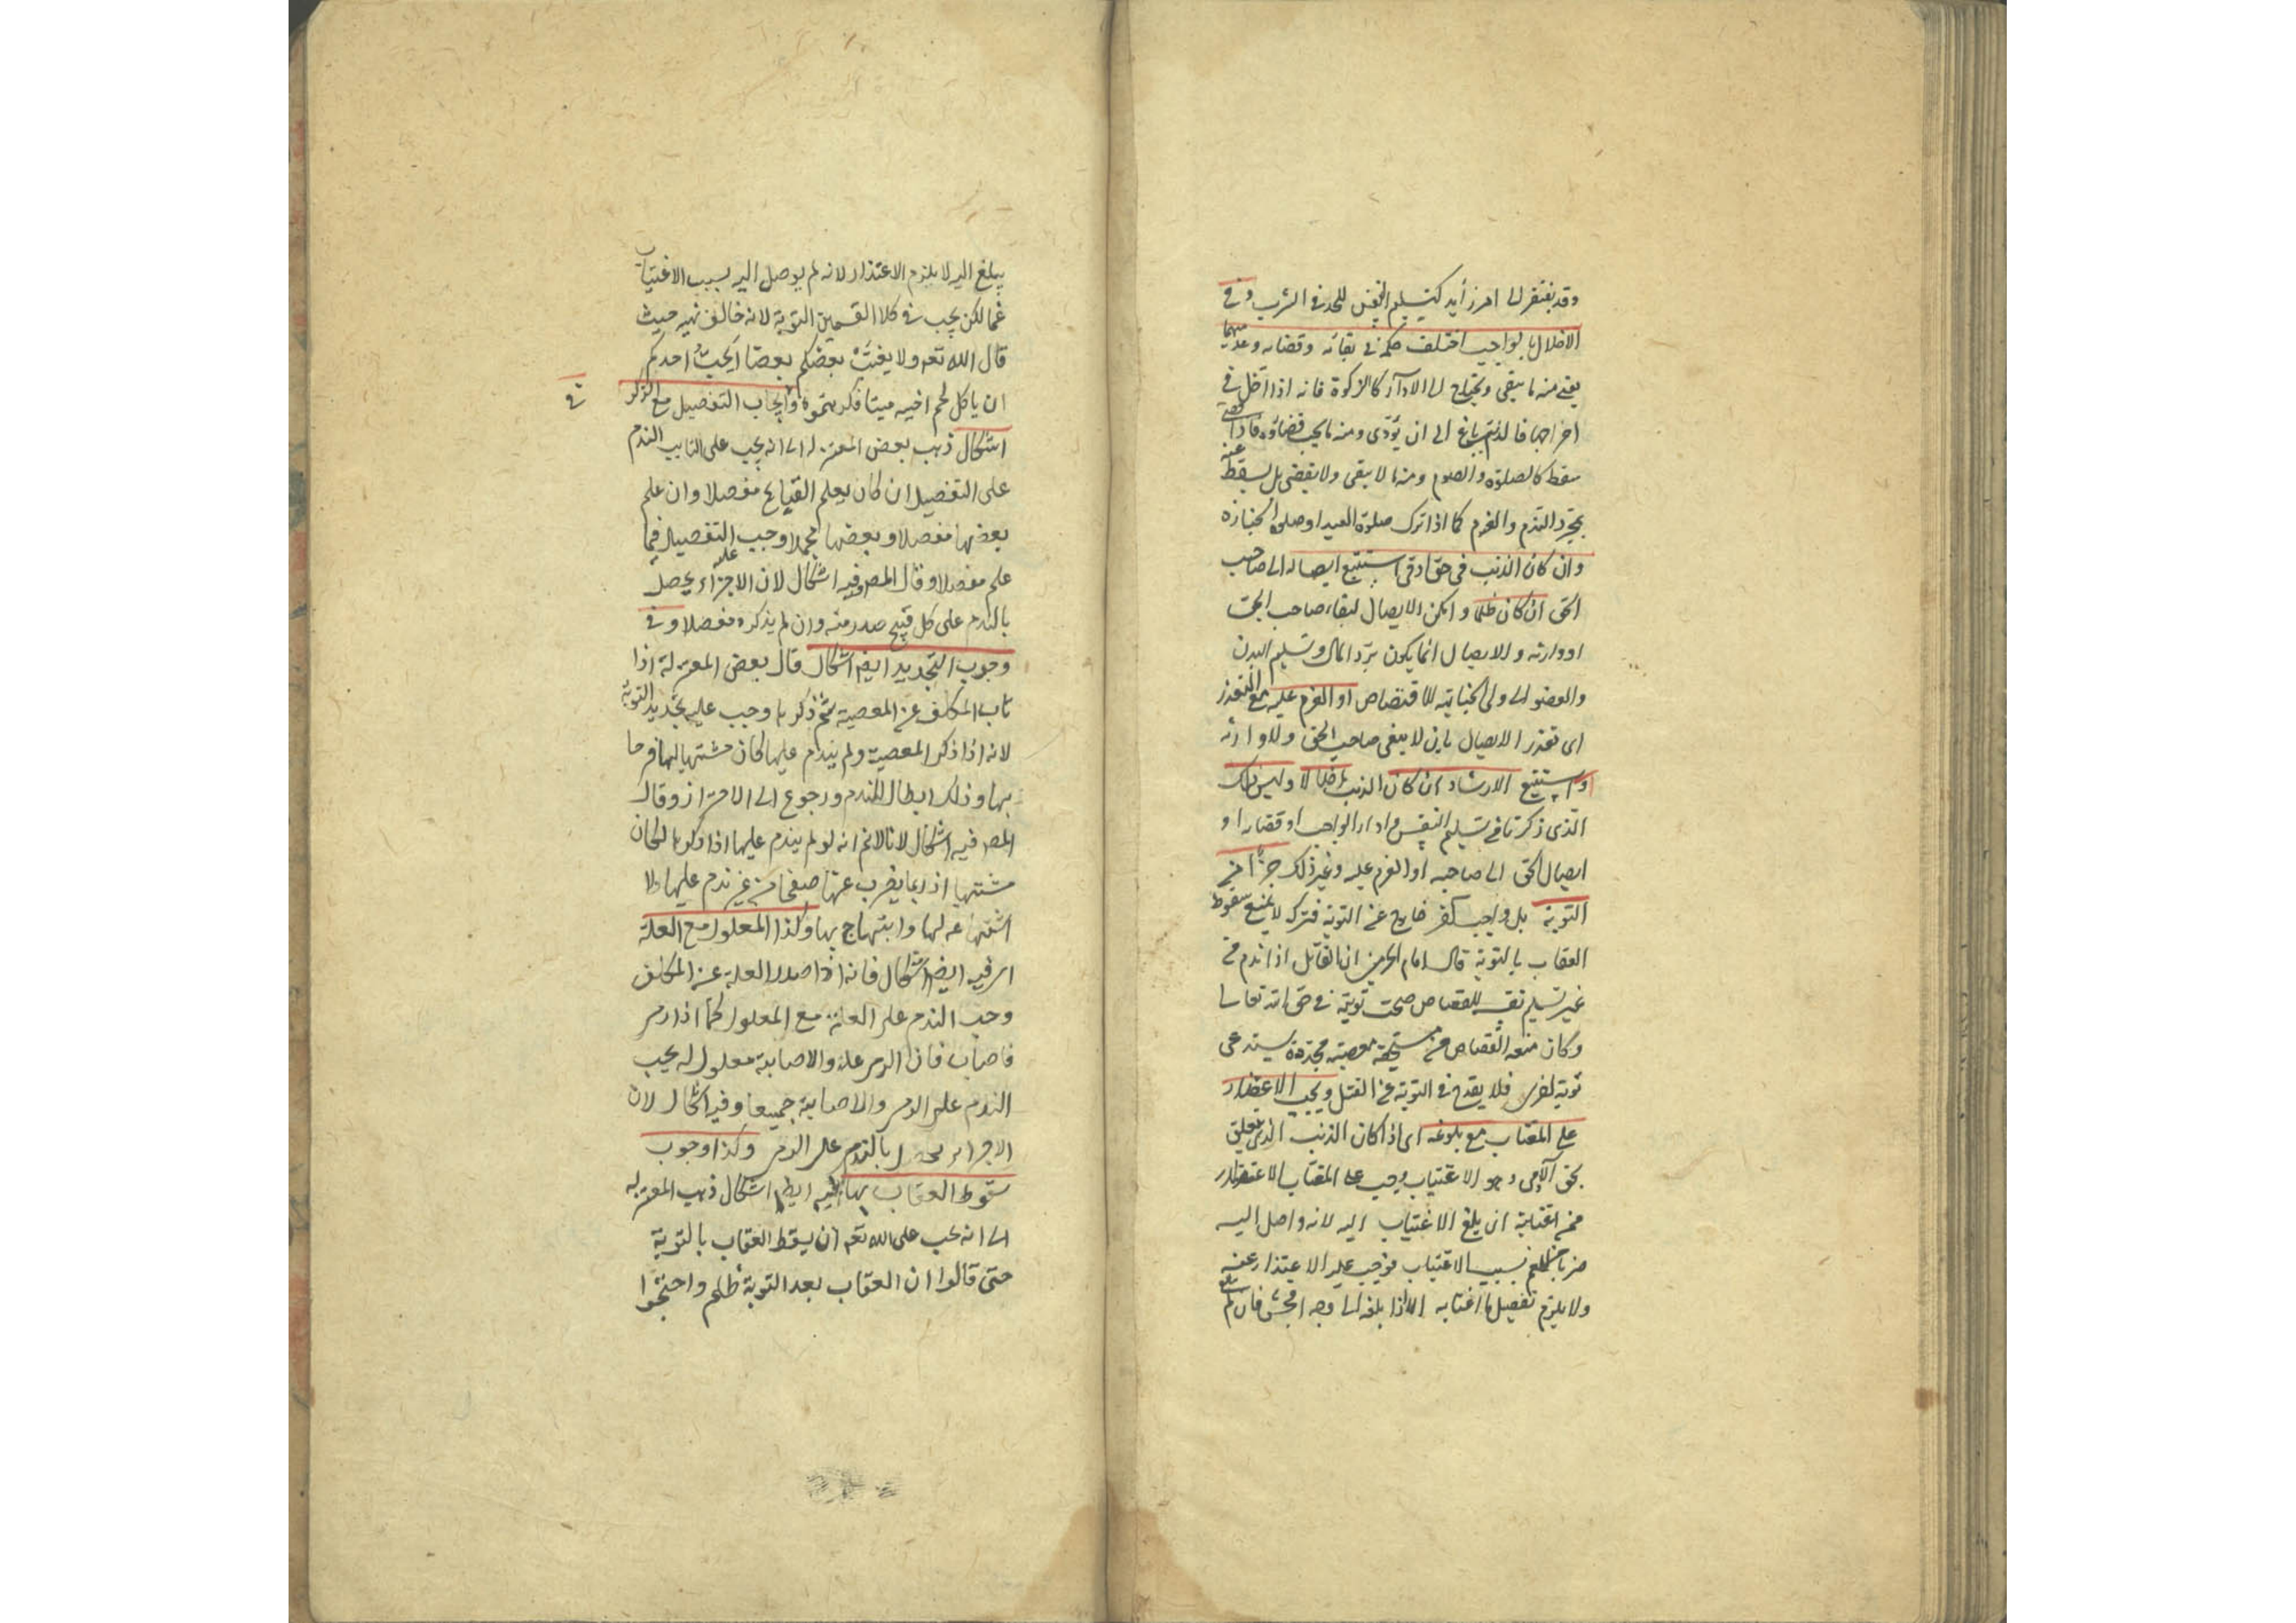 وقد يفتقر الى امر زايد كتسليم النفس للحد فى الشرب وفى
الاخلال بالواجب اختلف حكمه فى بقائه وقضائه وعدمهما
يعنى منه ما يبقى ويحتاج الى الاداء كالزكوة فانه اذا اخل فى
اخراجها فالذنب باق الى ان يؤدى ومنه ما يجب قضاؤه فاذا قضى
سقط كالصلوة والصوم ومنه ما لا يبقى ولا يقضى بل يسقط عنه
بمجرد الندم والعزم كما اذا ترك صلوة العيد او صلوة الجنازة
وان كان الذنب فى حق ادمى استتبع ايصاله الى صاحب
الحق ان كان ظلما وامكن الايصال لبقاء صاحب الحق
او وارثه والايصال انما يكون برد المال وتسليم البدن
والعضو الى ولى الجناية للاقتصاص او العزم عليه مع التعذر
اى تعذر الايصال بان لا يبقى صاحب الحق ولا وارثه
او استتبع الارشاد ان كان الذنب اضلالا وليس ذلك
الذى ذكرنا فى تسليم النفس واداء الواجب او قضائه او
ايصال الحق الى صاحبه او العزم عليه وغير ذلك جزأ من
التوبة بل واجب اخر خارج عن التوبة فتركه لا يمنع سقوط
العقاب بالتوبة قال امام الحرمين ان القاتل اذا ندم من
غير تسليم نفسه للقصاص صحت توبته فى حق الله تعالى
وكان منعه القصاص من مستحقه معصية مجددة يستدعى
توبة اخرى فلا يقدح فى التوبة عن القتل ويجب الاعتذار
على المغتاب مع بلوغه اى اذا كان الذنب الذى يتعلق
بحق الآدمى وهو الاغتياب يجب على المغتاب الاعتذار
ممن اغتابه ان بلغ الاغتياب اليه لانه واصل اليه
ضربا من الغم بسبب الاغتياب فوجب عليه الاعتذار عنه
ولا يلزم تفصيل ما اغتابه الا اذا بلغه على وجه افحش فان لم
يبلغ اليه لا يلزم الاعتذار لانه لم يوصل اليه بسبب الاغتياب
غما لكن يجب فى كلا القسمين التوبة لانه خالف نهيه حيث
قال الله تعه ولا يغتب بعضكم بعضا ايحب احدكم
ان ياكل لحم اخيه ميتا فكرهتموه وايجاب التفصيل مع الذكر
فى
اشكال ذهب بعض المعتزله الى انه يجب على التايب الندم
على التفصيل ان كان يعلم القبايح مفصلا وان علم
بعضها مفصلا وبعضها مجملا وجب عليه التفصيل فيما
علم مفصلا وقال المص وفيه اشكال لان الاجزاء يحصل
بالندم على كل قبيح صدر منه وان لم يذكره مفصلا وفى
وجوب التجديد ايضا اشكال قال بعض المعتزلة اذا
تاب المكلف عن المعصية ثم ذكرها وجب عليه تجديد التوبة
لانه اذا ذكر المعصية ولم يندم عليها كان مشتهيا لها فرحا
بها وذلك ابطال للندم ورجوع الى الاصرار وقال
المص فيه اشكال لانا لا نم انه لو لم يندم عليها اذا ذكرها لكان
مشتهيا اذ ربما يضرب عنها صفحا من غير ندم عليها ولا
اشتهاء لها وابتهاج بها وكذا المعلول مع العلة
اى فيه ايضا اشكال فانه اذا صدر العلة عن المكلف
وجب الندم على العلة مع المعلول كما اذا رمى
فاصاب فان الرمى علة والاصابة معلول له يجب
الندم على الرمى والاصابة جميعا وفيه اشكال لان
الاجزاء يحصل بالندم على الرمى وكذا وجوب
سقوط العقاب بها فيه ايضا اشكال ذهب المعتزله
الى انه يجب على الله تعه ان يسقط العقاب بالتوبة
حتى قالوا ان العقاب بعد التوبة ظلم واحتجوا